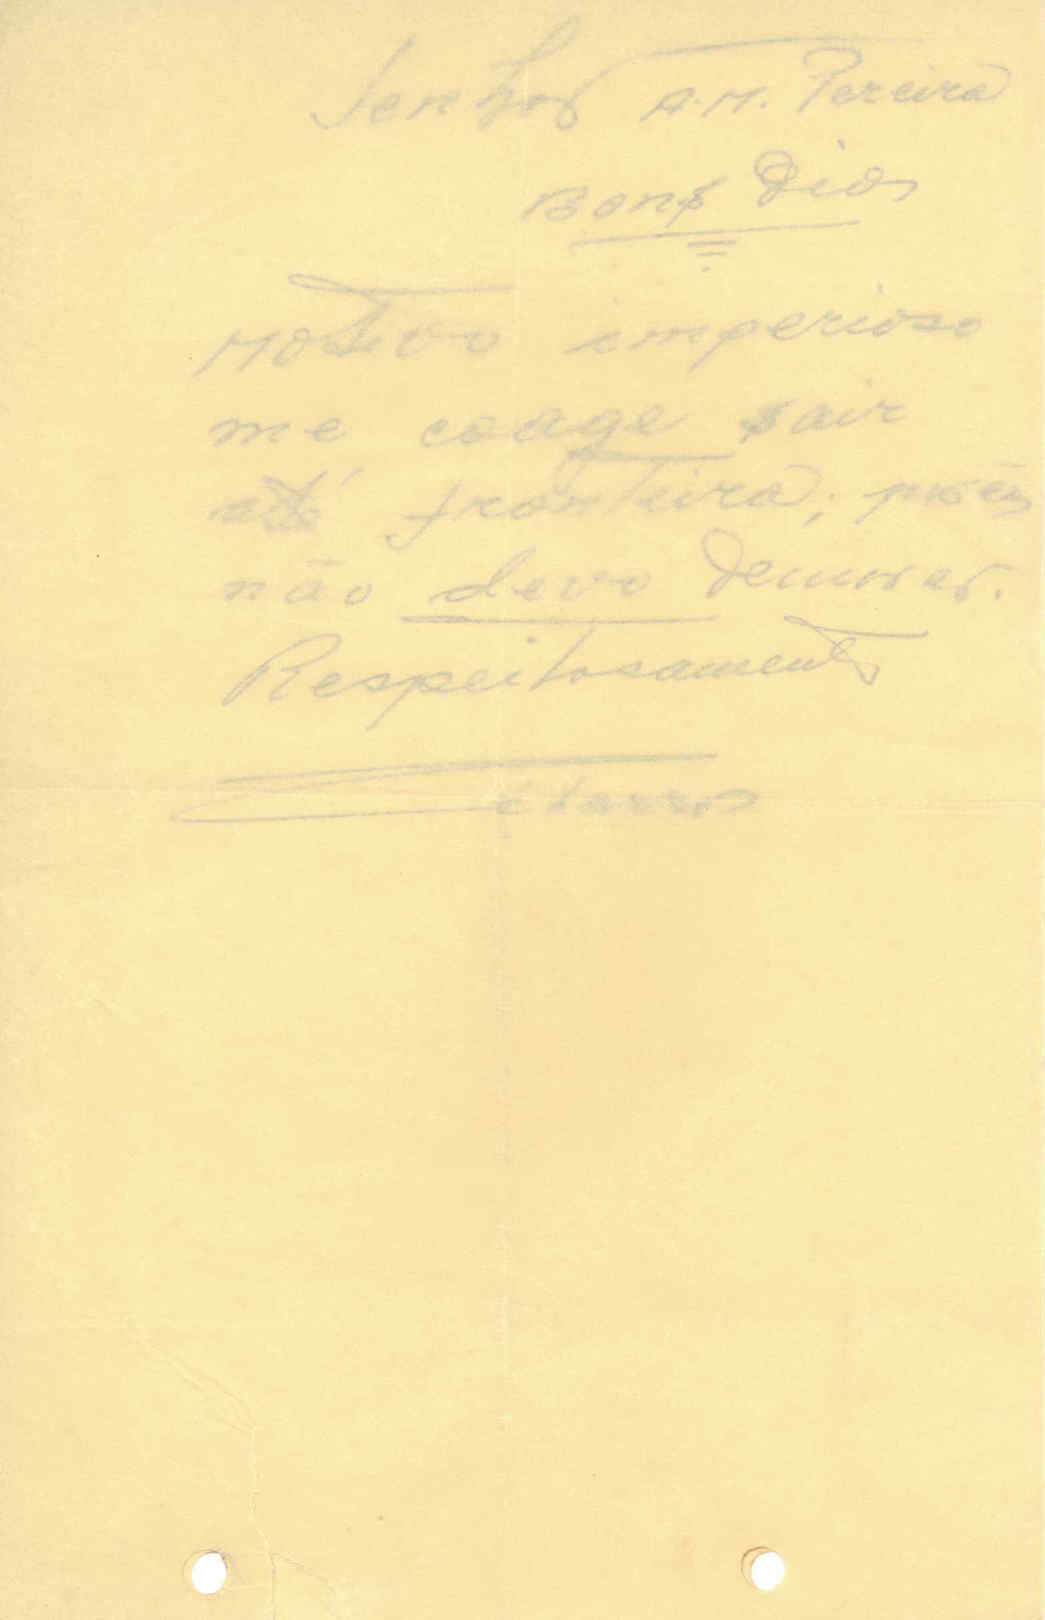 Senhor A.M. Pereira
Bons Dias
Motivo imperioso
me coage sair
até fronteira; porém
não devo demorar.
Respeitosamente